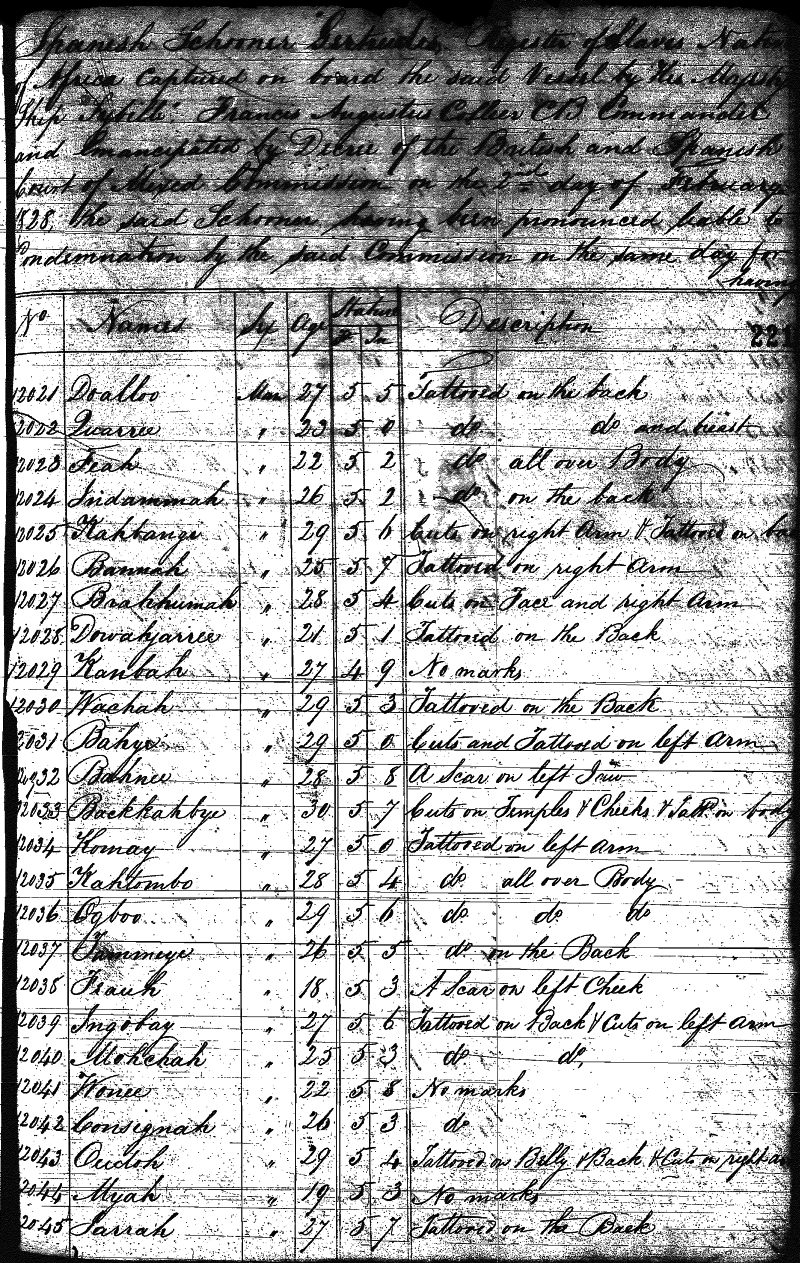 Spanish Schooner Gertrudes, Register of Slaves Natives
of Africa captured on board the said Vessel by His Majesty
Ship Sybille". Francis Augustus Collier CB Commander
and Emancipated by Decree of the British and Spanish
Court of Mixed Commission on the 2nd day of February
1828. the said Schooner having been pronounced liable to
Condemnation by the said Commission on the same day for
having
No Names Sex Age Stature Description
Ft In 221
12021 Doalloo Man 27 5 5 Tattooed on the back
12022 Quarree " 23 5 0 do do and breast
12023 Feah " 22 5 2 do all over Body
12024 Indammah " 26 5 2 do on the back
12025 Kahbange " 29 5 6 Cuts on right Arm & Tattooed on
12026 Bannah " 25 5 7 Tattooed on right Arm
12027 Brakhumah " 28 5 4 Cuts on Face and right Arm
12028 Dowahjarree " 21 5 1 Tattooed on the Back
12029 Kanbah " 27 4 9 No marks
12030 Wachah " 29 5 3 Tattooed on the Back
12031 Bahye " 29 5 0 Cuts and Tattooed on left Arm
12032 Bahnee " 28 5 8 A Scar on left Jaw
12033 Backkahbye " 30 5 7 Cuts on Temples & Cheeks & Tatd. on body
12034 Komay " 27 5 0 Tattooed on left arm
12035 Kahtombo " 28 5 4 do all over Body
12036 Ogboo " 29 5 6 do do do
12037 Tammeye " 26 5 5 do on the Back
12038 Isauh " 18 5 3 A Scar on left Cheek
12039 Ingobay " 27 5 6 Tattooed on Back & Cuts on left arm
12040 Mohchah " 25 5 3 do do,
12041 Wonee " 22 5 8 No marks
12042 Consignah " 26 5 3 do
12043 Oudoh " 29 5 4 Tattooed on Belly & Back & Cuts on right
12044 Myah " 19 5 3 No marks
12045 Sarrah " 27 5 7 Tattooed on the Back